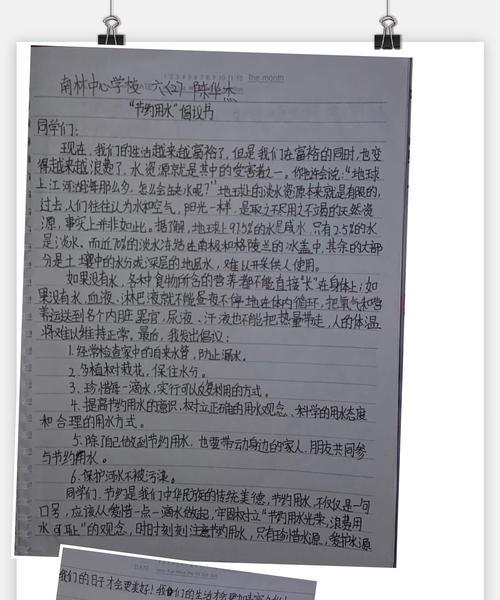 1 2 3 4 5 6 7 8 9 10 11 12 The month
南林中心学校 六(2) 陈华杰
"节约用水"倡议书
同学们:
现在,我们的生活越来越富裕了,但是我们在富裕的同时,也变
得越来越浪费了,水资源就是其中的受害者之一。你也许会说:"地球
上江河湖海那么多,怎么会缺水呢?"地球上的淡水资源本来就是有限的,
过去人们往往认为水和空气、阳光一样,是取之不尽用之不竭的天然资
源,事实上并非如此。据了解,地球上97.5%的水是咸水,只有2.5%的水
是淡水。而近70%的淡水冻结在南极和格陵兰的冰盖中,其余的大部
分是土壤中的水分或深层的地层水,难以开采供人使用。
如果没有水,各种食物所含的营养都不能直接"长"在身体上;如
果没有水,血液、淋巴液就不能昼夜不停地在体内循环,把氧气和营
养运送到各个内脏器官,尿液、汗液也不能把热量带走,人的体温
将难以维持正常。最后,我发出倡议:
1.经常检查家中的自来水管,防止漏水。
2.多植树栽花,保住水分。
3、珍惜每一滴水,实行可以反复利用的方式。
4、提高节约用水的意识,树立正确的用水观念、科学的用水态度
和合理的用水方式。
5、除了自己做到节约用水,也要带动身边的家人、朋友共同参
与节约用水。
6.保护河水不被污染。
同学们,节约是我们中华民族的传统美德,节约用水,不仅仅是一句
口号,应该从爱惜一点一滴水做起,牢固树立"节约用水光荣,浪费用
水可耻"的观念,时时刻刻注意节约用水,只有珍惜水源,爱护水源
我们的日子才会更美好!我们的生活才会